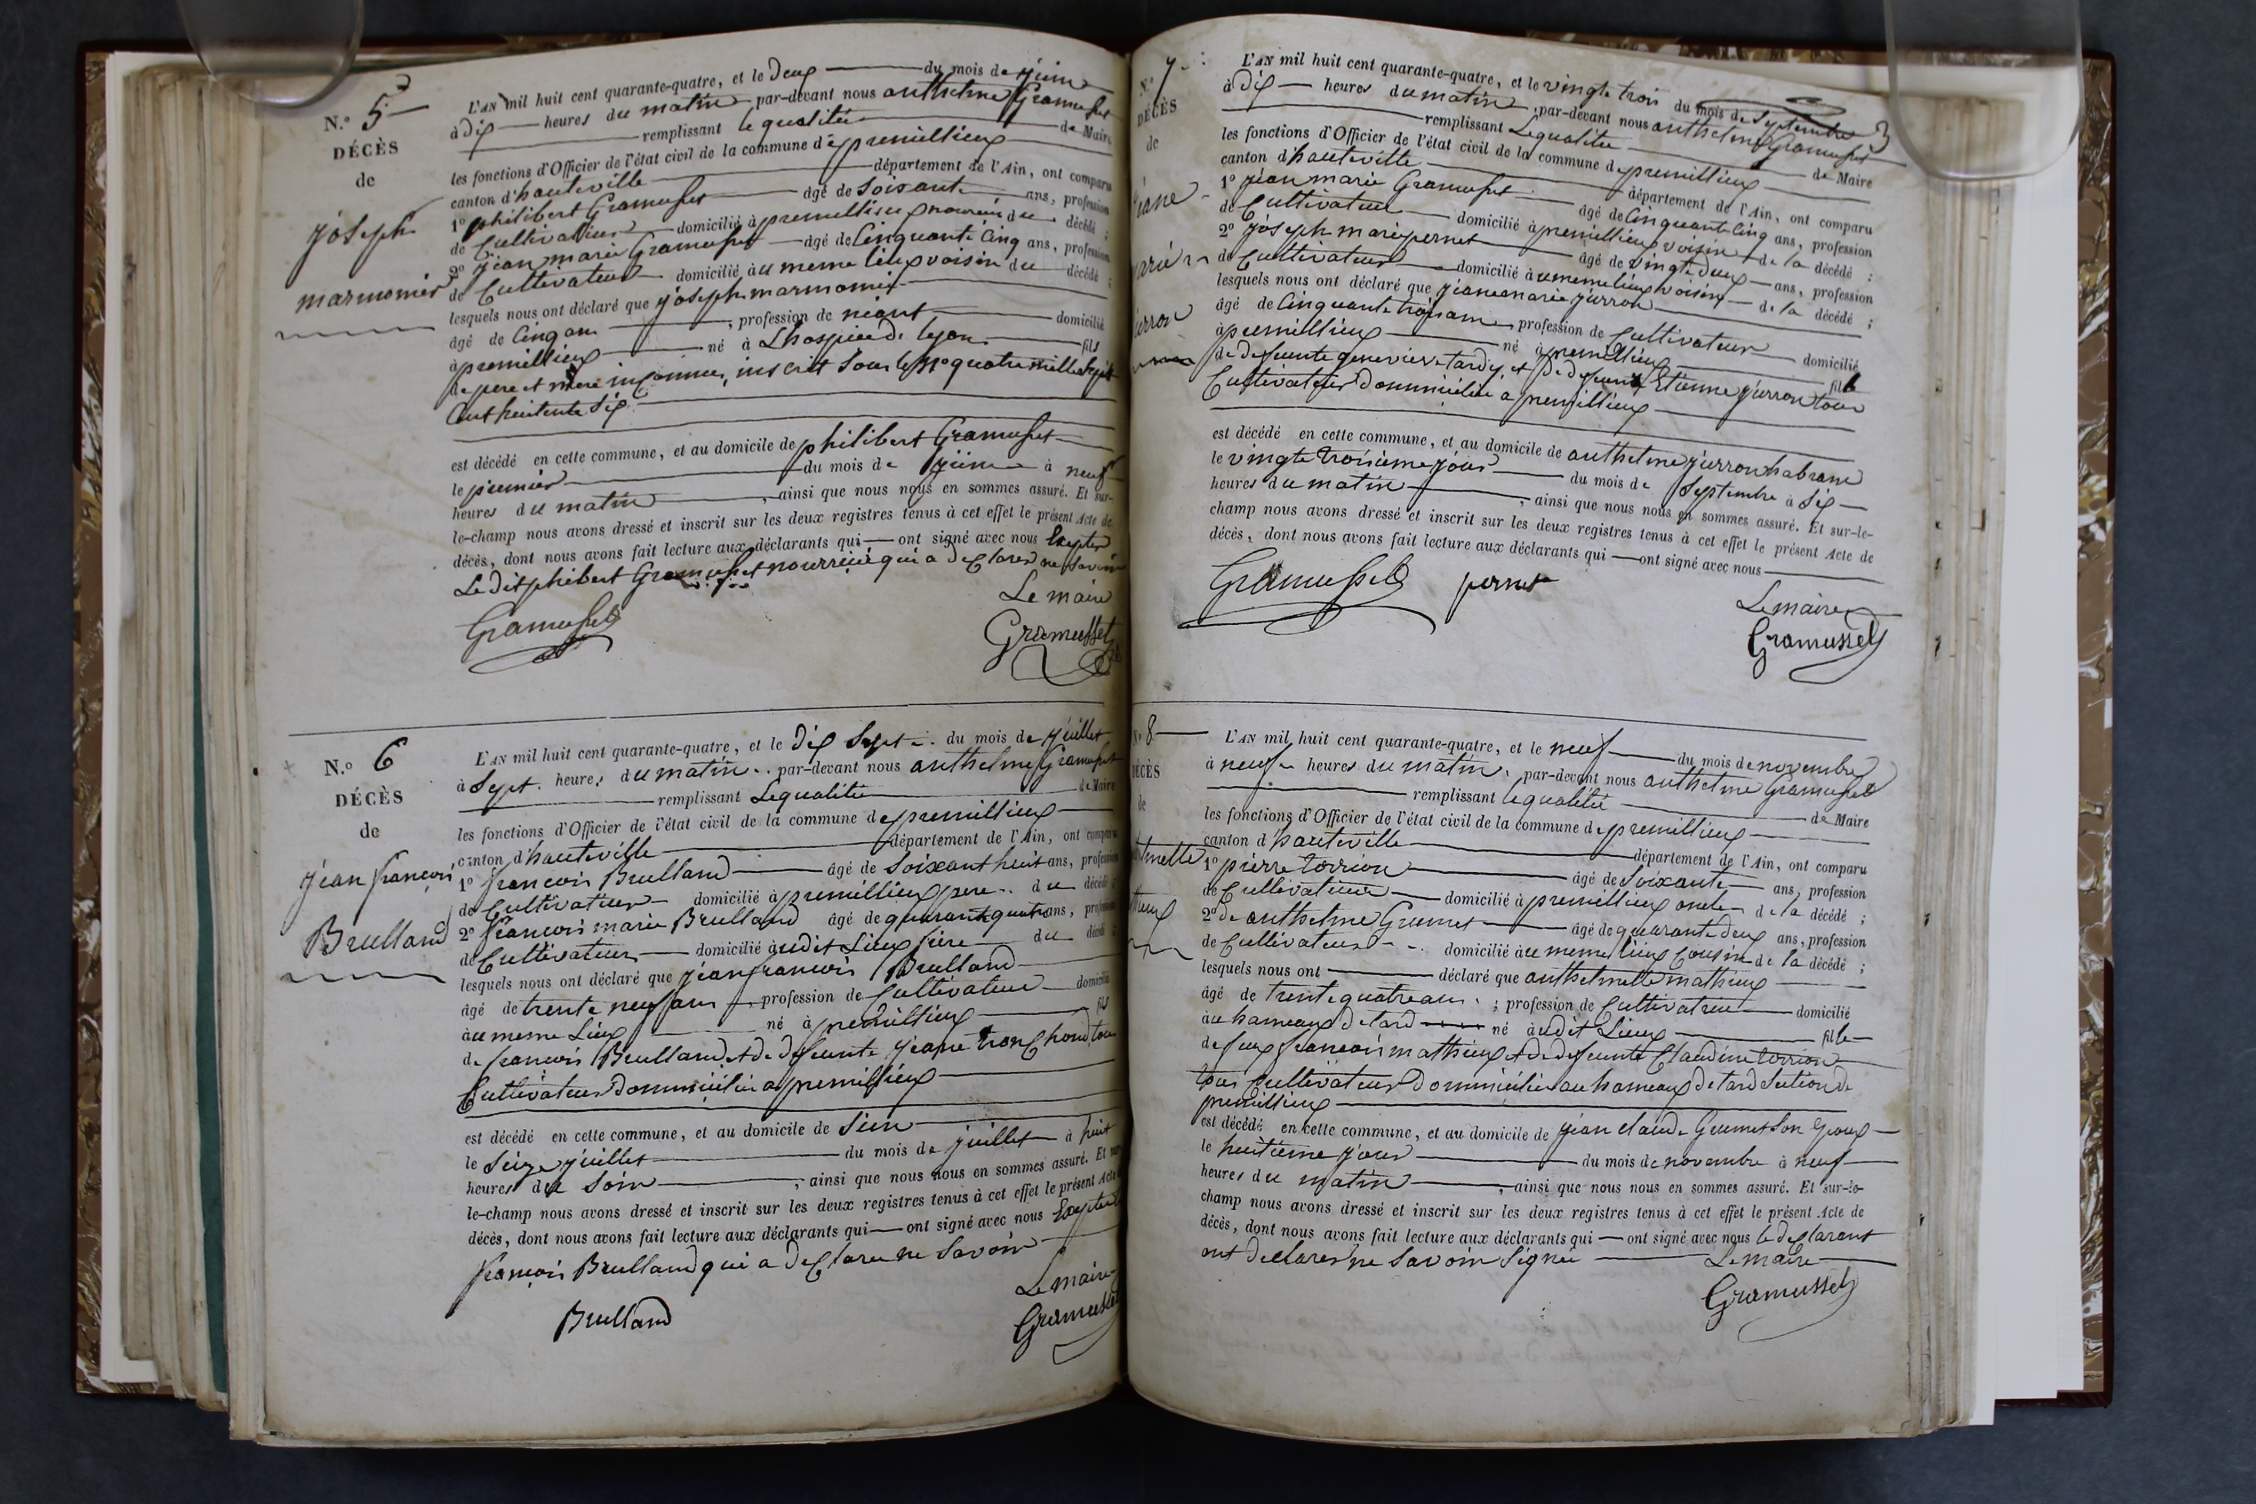 N.° 5
DÉCÈS
de
joseph
marmonier
L'AN mil huit cent quarante-quatre, et le deux du mois de juin
à dix heures du matin par-devant nous anthelme Gramusset
remplissant le qualitée de Maire
les fonctions d'Officier de l'état civil de la commune de premillieux
canton d'hauteville département de l'Ain, ont comparu
1° philibert Gramusset âgé de Soixante ans, profession
de Cultivateur domicilié à premillieux nouricié du décédé ;
2° jean marie Gramusset âgé de Cinquante Cinq ans, profession
de Cultivateur domicilié à u meme lieux voisin du décédé ;
lesquels nous ont déclaré que joseph marmonier
âgé de Cinq ans , profession de néant domicilié
à premillieux né à Lhospice de lyon fils
de pere et mere inconnu, inscrit Sous le No quatre mille Sept
Cent huitente Six
est décédé en cette commune, et au domicile de philibert Gramusset
le premier du mois de juin à neuf
heures du matin , ainsi que nous nous en sommes assuré. Et sur-
le-champ nous avons dressé et inscrit sur les deux registres tenus à cet effet le présent Acte de
décès, dont nous avons fait lecture aux déclarants qui ont signé avec nous Exepter
Le dit phibert Gramusset nourricié qui a declarer ne Savoir
Le maire
Gramusset
Gramusset
N.° 6
DÉCÈS
de
jean françois
Brulland
L'AN mil huit cent quarante-quatre, et le dix Sept du mois de juillet
à Sept heures du matin par-devant nous anthelme Gramusset
remplissant Le qualitée de Maire
les fonctions d'Officier de l'état civil de la commune de premillieux
canton d'hauteville département de l'Ain, ont comparu
1° françois Brulland âgé de Soixant huit ans, profession
de Cultivateur domicilié à premillieux pere du décédé
2° françois marie Brulland âgé de quarant quatre ans, profession
de Cultivateur domicilié à udit Lieux frère du décédé
lesquels nous ont déclaré que jean françois Brulland
âgé de trente neuf ans profession de Cultivateur domicilié
à u meme Lieux né à premillieux fils
de françois Brulland et de defeunte jeane tronchond tous
Cultivateur Dommicilié a premillieux
est décédé en cette commune, et au domicile de Sien
le Seize juillet du mois de juillet à huit
heures du Soir , ainsi que nous nous en sommes assuré. Et sur
le-champ nous avons dressé et inscrit sur les deux registres tenus à cet effet le présent Acte
décès, dont nous avons fait lecture aux déclarants qui ont signé avec nous Exepter
françois Brulland qui a declarer ne Savoir
Le maire
Brulland
Gramusset
N.° 7
DÉCÈS
de
jane
marie
jurron
L'AN mil huit cent quarante-quatre, et le vingte trois du mois de Septembre
à dix heures du matin , par-devant nous anthelme Gramusset
remplissant Le qualitée de Maire
les fonctions d'Officier de l'état civil de la commune de premillieux
canton d'hauteville département de l'Ain, ont comparu
1° jean marie Gramusset âgé de Cinquante Cinq ans, profession
de Cultivateur domicilié à premillieux voisin de la décédé ;
2° joseph marie pernet âgé de vingte deux ans, profession
de Cultivateur domicilié à u meme lieux voisin de la décédé ;
lesquels nous ont déclaré que jeane marie jurron
âgé de Cinquante trois ans profession de Cultivateur domicilié
à premillieux né à premillieux fille
de defeunte genevieve tardy et de defeunt Etienne jurron tous
Cultivateur Dommicilié a premillieux
est décédé en cette commune, et au domicile de anthelme jurron
le vingte troisieme jour du mois de Septembre à Six
heures du matin , ainsi que nous nous en sommes assuré. Et sur-le-
champ nous avons dressé et inscrit sur les deux registres tenus à cet effet le présent Acte de
décès, dont nous avons fait lecture aux déclarants qui ont signé avec nous
Gramusset pernet
Le maire
Gramusset
N° 8
DÉCÈS
de
L'AN mil huit cent quarante-quatre, et le neuf du mois de novembre
à neuf heures du matin , par-devant nous anthelme Gramusset
remplissant le qualitée de Maire
les fonctions d'Officier de l'état civil de la commune de premillieux
canton d'hauteville département de l'Ain, ont comparu
1° pierre torrion âgé de Soixante ans, profession
de Cultivateur domicilié à premillieux oncle de la décédé ;
2° de anthelme Grumet âgé de quarante deux ans, profession
de Cultivateur domicilié à u meme lieux Cousin de la décédé ;
lesquels nous ont déclaré que anthelmette mathieux
âgé de trente quatre ans ; profession de Cultivatrice domicilié
à u hameaux de tard né à udit Lieux fille
de feux françois mathieux et de defeunte Claudine torrion
tous Cultivateur Dommicilié au hameaux de tard Section de
premillieux
est décédé en cette commune, et au domicile de jean claude Grumet Son Epoux
le huitieme jour du mois de novembre à neuf
heures du matin , ainsi que nous nous en sommes assuré. Et sur-le-
champ nous avons dressé et inscrit sur les deux registres tenus à cet effet le présent Acte de
décès, dont nous avons fait lecture aux déclarants qui ont signé avec nous le declarant
ont declarer ne Savoir Signée Le maire
Gramusset